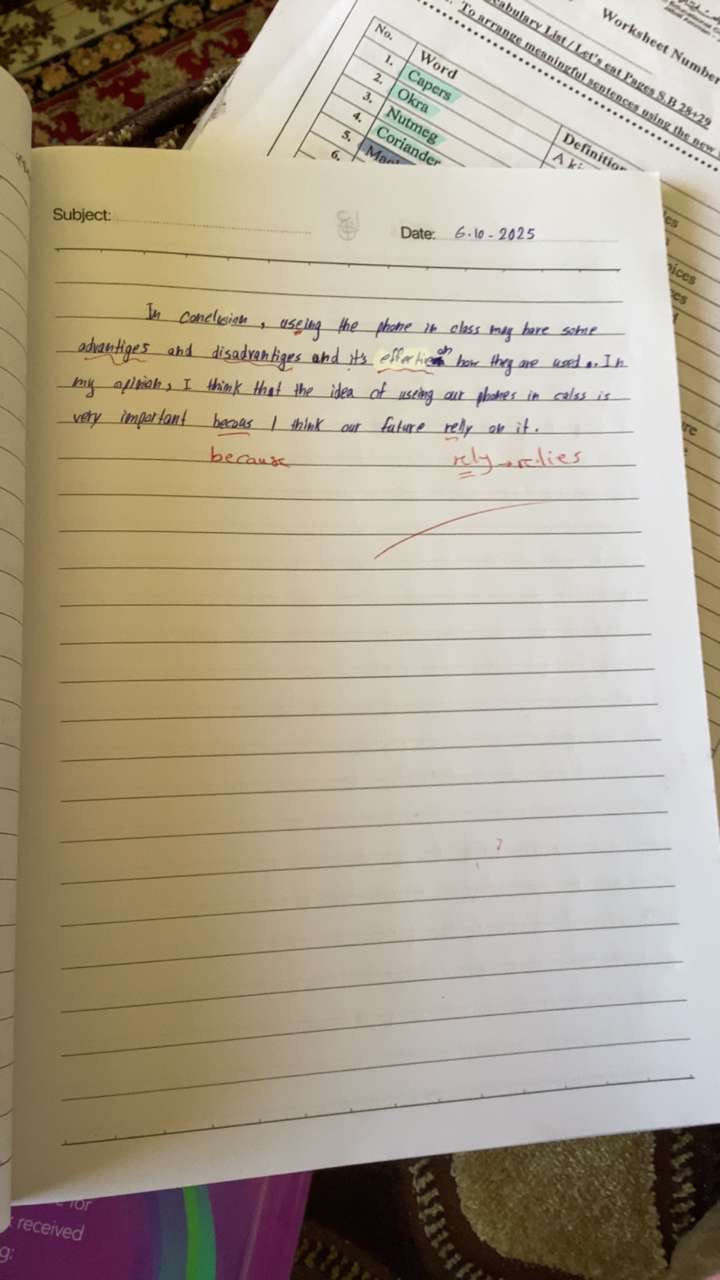 Worksheet Number
Vocabulary List / Let's eat Pages S.B 28+29
To arrange meaningful sentences using the new
No.
Word
Definition
1.
Capers
A ki
2.
Okra
3.
Nutmeg
4.
Coriander
5.
6.
Subject:
Date: 6.10-2025
In conclusion, useing the phone in class may have some
advantiges and disadvantiges and its on how they are used. In
my opinion, I think that the idea of useing our phones in calss is
very important becaus I think our future rely on it.
because rely → relies
for
received
g: